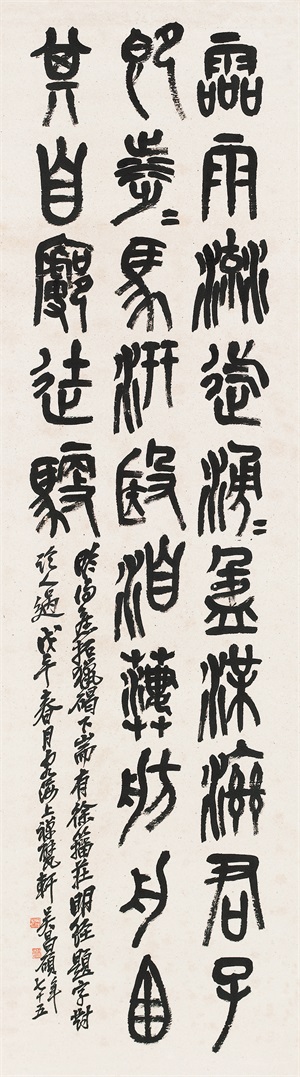 霝雨流迄湧=盈渫濟君子
即涉=馬汧殹洎萋舫舟囪
其自廓徒馭
昨得舊拓獵碣下耑有徐籀莊明經題字對
臨一過戊午春月海上禪甓軒吳昌碩年七十五